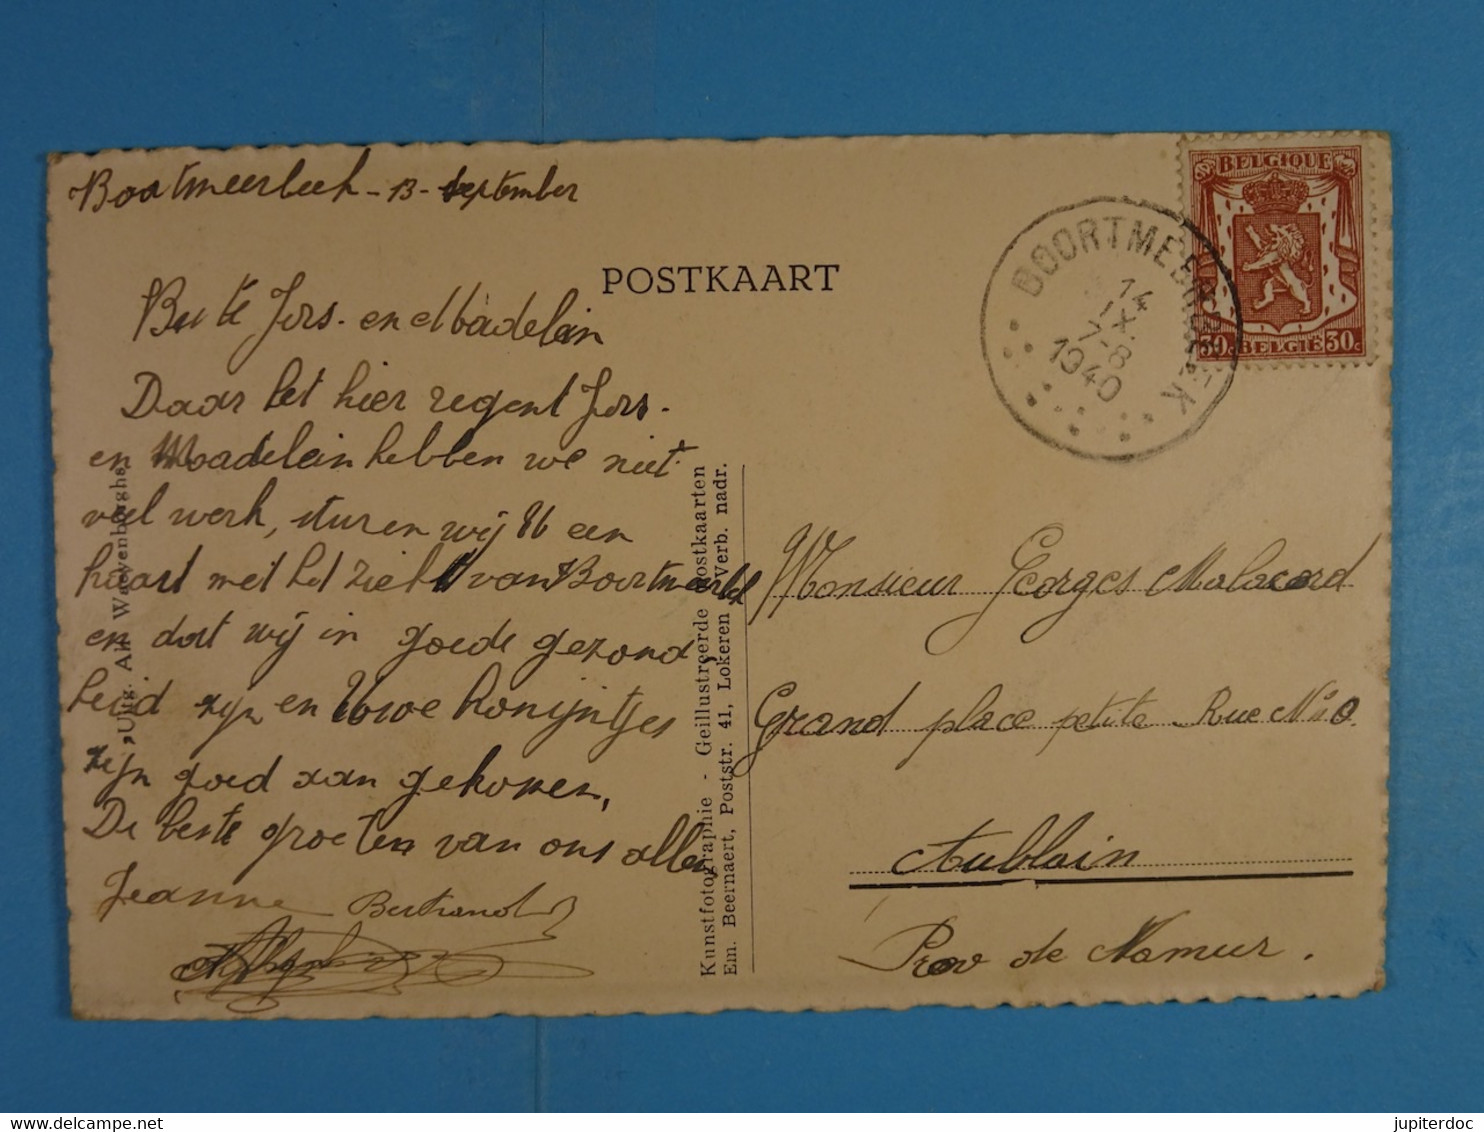 Boortmeerbeek - 13 - September
POSTKAART
Beste Jors. en Madelein
Daar het hier regent Jors.
en Madelein hebben we niet
veel werk, sturen wij U een
kaart met het zicht van Boortmeerbeek
en dat wij in goede gezond
heid zijn en Uwe konijntjes
zijn goed aan gekomen,
De beste groeten van ons allen
Jeanne Bertrand
Uitg. Alf. Waeyenberghs,
Kunstfotographie - Geillustreerde Postkaarten
Em. Beernaert, Poststr. 41, Lokeren Verb. nadr.
BELGIQUE
30c BELGIË 30c
BOORTMEERBEEK
14
IX
7-8
1940
Monsieur Georges Malacord
Grand place petite Rue N° 10
Aublain
Prov de Namur.
delcampe.net
jupiterdoc